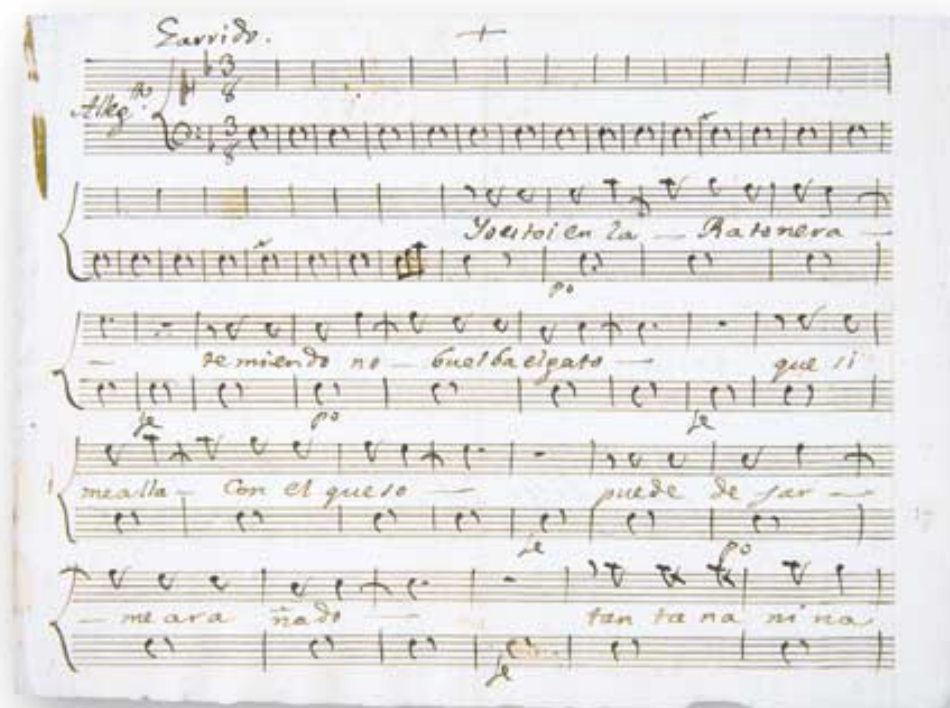 Garrido.
Alleg.to 3/8
3/8
Yo estoi en la — Ratonera —
po
— temiendo no — buelba el gato — que si
fe po fe
me alla — Con el queso — puede de jar —
fe po
— me ara ñado — tan ta na ni na
fe